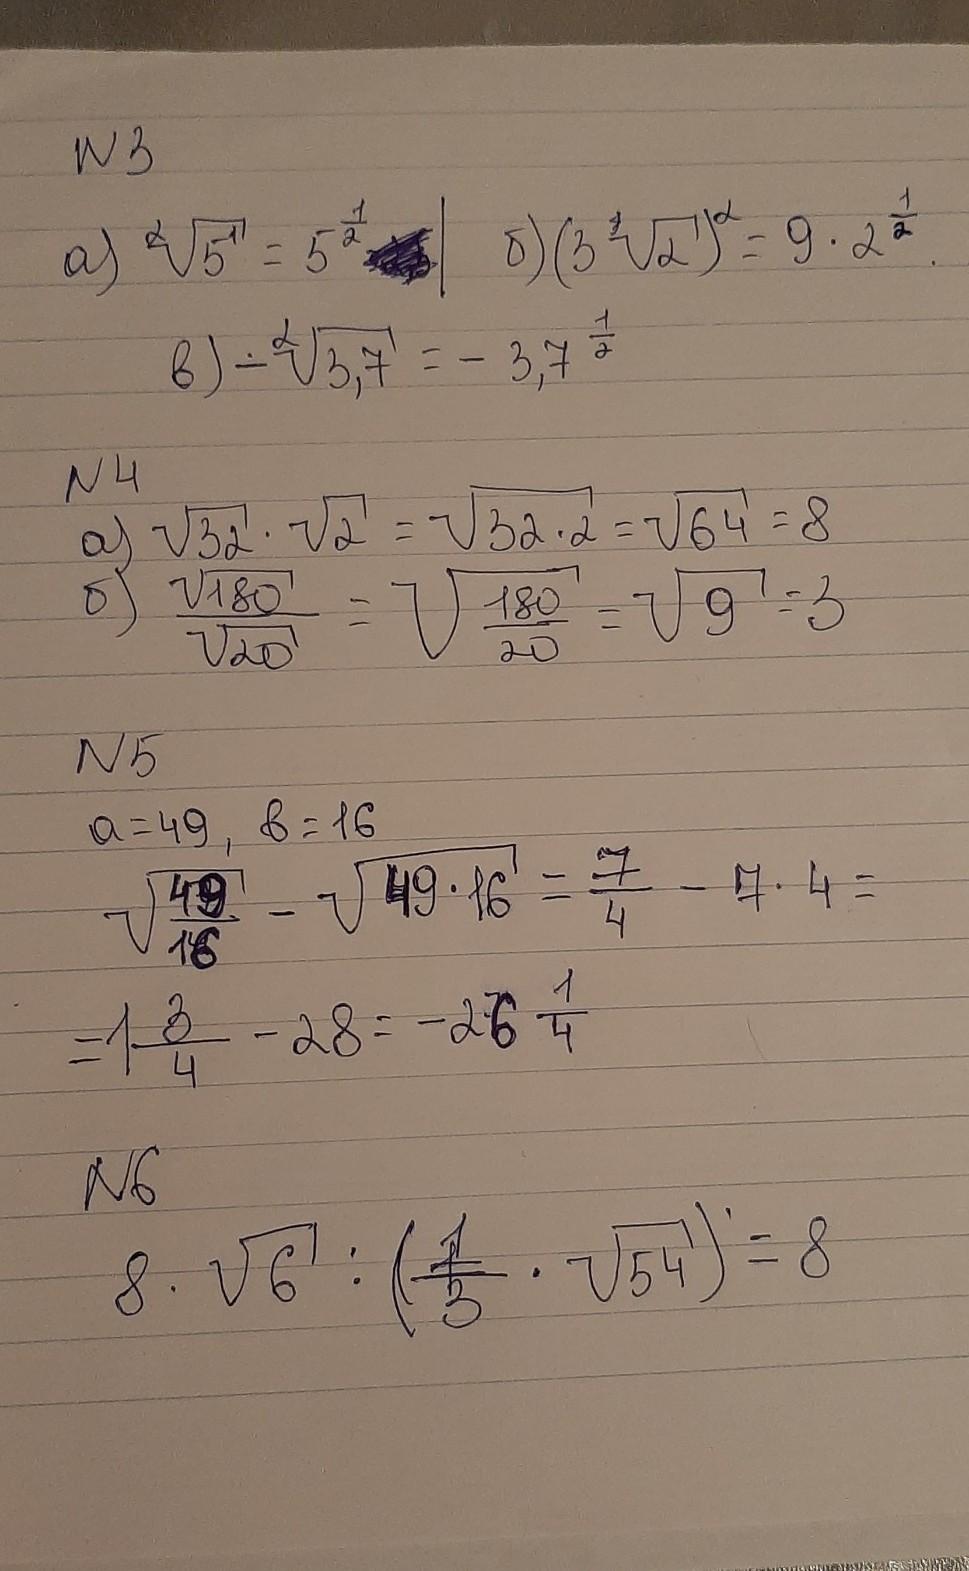 N3
а) ²√5 = 5^(1/2) | б) (3 ⁴√2)² = 9 · 2^(1/2).
в) - ²√3,7 = - 3,7^(1/2)
N4
а) √32 · √2 = √32·2 = √64 = 8
б) √180/√20 = √(180/20) = √9 = 3
N5
a=49, в=16
√(49/16) - √49·16 = 7/4 - 7·4 =
= 1 3/4 - 28 = - 26 1/4
N6
8 · √6 : (1/3 · √54) = 8